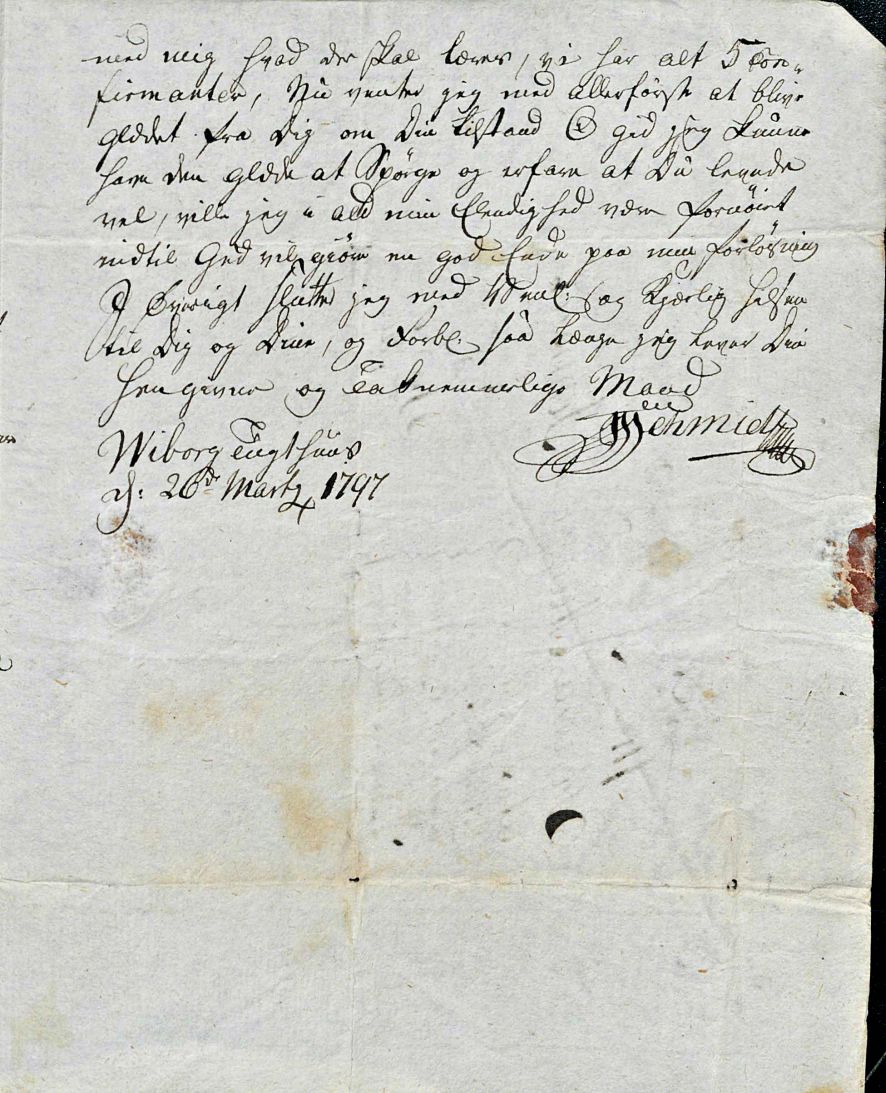 med mig hvad der skal læres, vi har alt 5 Con-
firmanter, Nu venter jeg med allerførste at blive
glædet fra Dig om Din tilstand O gid jeg kunne
have den glæde at Spørge og erfare at Du levede
vel, ville jeg i ald min Elendighed være fornøiet
indtil Gud vil giøre en god Ende paa min forløsning
I Øvrigt slutter jeg med Venl: og Kjærlig hilsen
til Dig og Dine, og Forbl: saa længe jeg lever Din
Hengivne og Taknemmerlige Mand
Schmidt
Wiborg Tugthuus
d: 26de Marty 1797